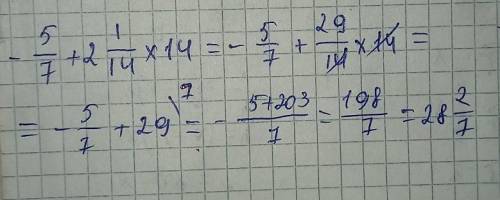 - 5/7 + 2 1/14 × 14 = - 5/7 + 29/14 × 14 =
= - 5/7 + 29 \7 = - 5+203/7 = 198/7 = 28 2/7